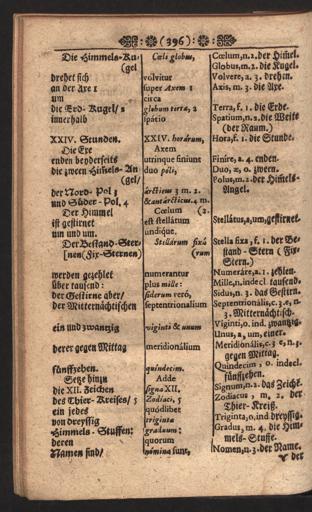 (396)
Die Himmels-Ku-
(gel
drehet sich
an der Axe 1
um
die Erd-Kugel/ 2
innerhalb
XXIV. Stunden.
Die Axe
enden beyderseits
die zween Himels-An-
(gel/
der Nord-Pol 3
und Süder-Pol. 4
Der Himmel
ist gestirnet
um und um.
Der Bestand-Ster-
[nen (Fix-Sternen)
werden gezehlet
über tausend:
der Gestirne aber/
der Mitternächtischen
ein und zwantzig
derer gegen Mittag
fünffzehen.
Setze hinzu
die XII. Zeichen
des Thier-Kreises/ 5
ein jedes
von dreyssig
Himmels-Stuffen:
deren
Namen sind/
Cœli globus,
volvitur
super Axem 1
circa
globum terræ, 2
spatio
XXIV. horárum,
Axem
utrinque finiunt
duo poli,
árcticus 3 m. 2.
& antárcticus. 4 m.
Cœlum (2.
est stellátum
undique.
Stellárum fixá
(rum
numerantur
plus mille:
siderum verò,
septentrionalium
viginti & unum
meridionálium
quindecim.
Adde
signa XII,
Zodiaci, 5
quódlibet
triginta
graduum:
quorum
nómina sunt,
Cœlum, n. 2. der Him̃el.
Globus, m. 2. die Kugel.
Volvere, a. 3. drehen.
Axis, m. 3. die Axe.
Terra, f. 1. die Erde.
Spatium, n. 2. die Weite
(der Raum.)
Hora, f. 1. die Stunde.
Finire, a. 4. enden.
Duo, æ, o. zween.
Polus, m. 2. der Him̃els-
Angel.
Stellátus, a, um, gestirnet.
Stella fixa, f. 1. der Be-
stand-Stern (Fix-
Stern.)
Numeráre, a. 1. zehlen.
Mille, n. indecl. tausend.
Sidus, n. 3. das Gestirn.
Septentrionális, c. 3. e, n.
3. Mitternächtisch.
Viginti, o. ind. zwantzig.
Unus, a, um, einer.
Meridionális, c. 3 e, n. 3.
gegen Mittag.
Quindecim, o. indecl.
fünffzehen.
Signum, n. 2. das Zeichē.
Zodiacus, m. 2. der
Thier-Kreiß.
Triginta, o. ind dreyssig.
Gradus, m. 4. die Him-
mels-Stuffe.
Nomen, n. 3. der Name.